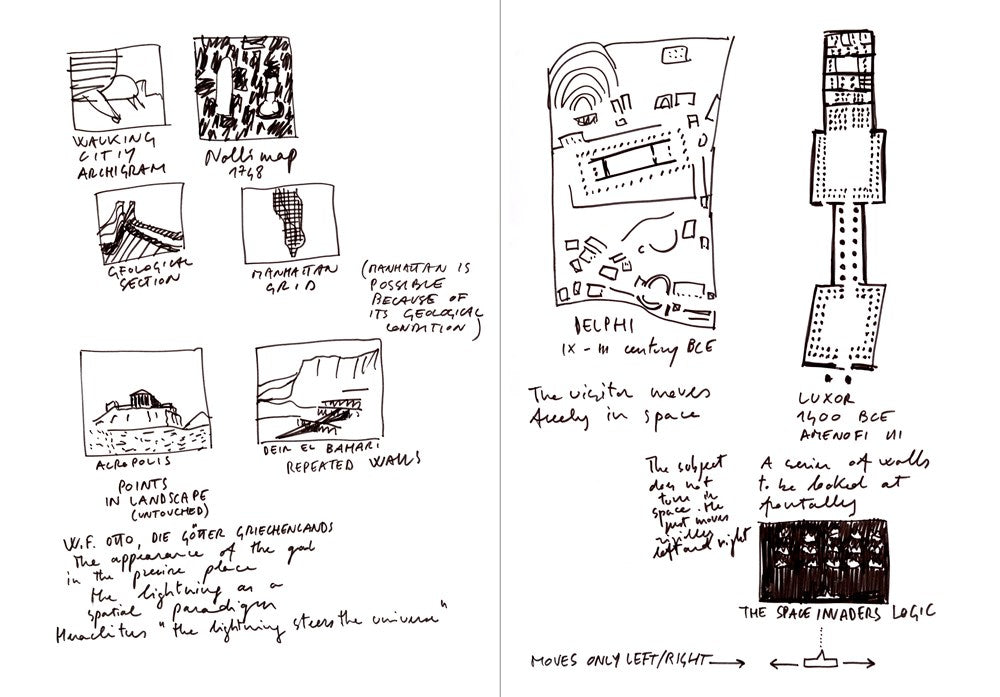 WALKING
CITY
ARCHIGRAM
Nolli map
1748
GEOLOGICAL
SECTION
MANHATTAN
GRID
(MANHATTAN IS
POSSIBLE
BECAUSE OF
ITS GEOLOGICAL
CONDITION)
ACROPOLIS
POINTS
IN LANDSCAPE
(UNTOUCHED)
DEIR EL BAHARI
REPEATED WALLS
W.F. OTTO, DIE GÖTTER GRIECHENLANDS
The appearance of the god
in the precise place
the lightning as a
spatial paradigm
Heraclitus "the lightning steers the universe"
DELPHI
IX - III century BCE
The visitor moves
freely in space
LUXOR
1400 BCE
AMENOFI III
A series of walls
to be looked at
frontally
The subject
does not
turn in
space. He
just moves
rigidly
left and right
THE SPACE INVADERS LOGIC
MOVES ONLY LEFT/RIGHT